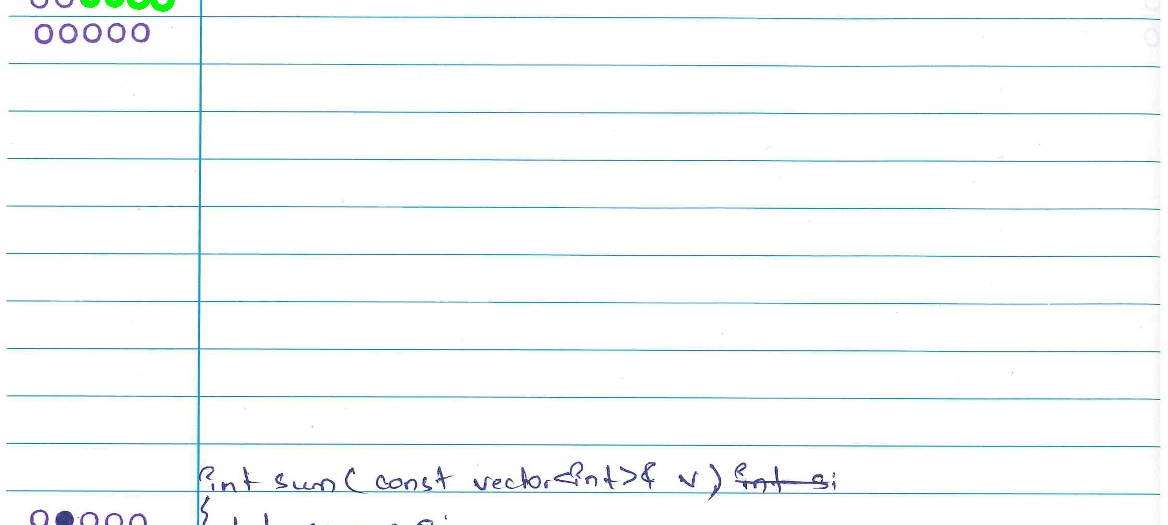 int sum(const vector<int>& v) int si
{